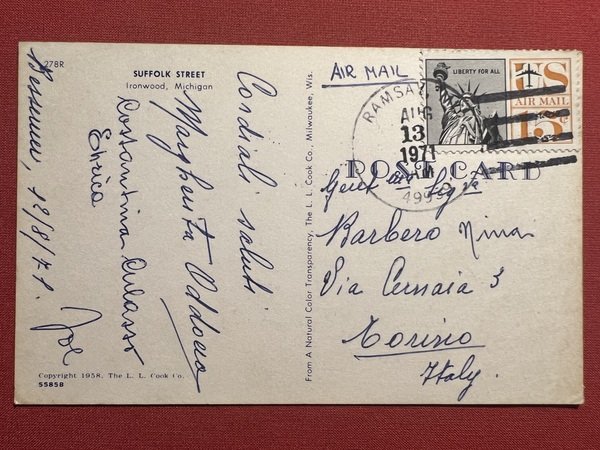 278R
SUFFOLK STREET
Ironwood, Michigan
Bessemer, 12/8/71.
Cordiali saluti
Margherita Oddono
Costantina
Enrica
Joe
Copyright 1958, The L. L. Cook Co.
55858
From A Natural Color Transparency, The L. L. Cook Co., Milwaukee, Wis.
AIR MAIL
LIBERTY FOR ALL
US
AIR MAIL
15¢
RAMSAY
AUG
13
1971
POST CARD
Gent Sig.ra
Barbero Nina
Via Cernaia 3
Torino
Italy.